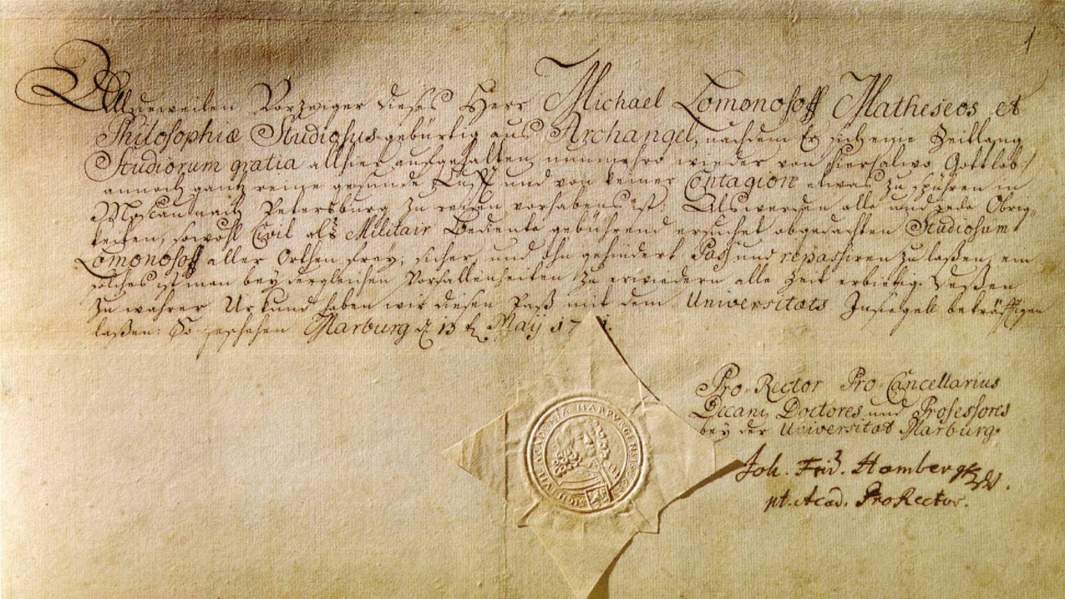 1
Alldieweilen Vorzeiger dieses Herr Michael Lomonosoff Matheseos et
Philosophiæ Studiosus gebürtig aus Archangel, nachdem Er sich eine Zeitlang
Studiorum gratia allhier aufgehalten, nunmehro wieder von hier, allwo Gottlob
annoch gantz reine gesunde Lufft und von keiner Contagion etwas zu spühren
Petersburg zu reisen vorhabens ist. Als werden alle und jede Obrig-
keiten, sowohl Civil als Militair Bediente gebührend ersuchet abgedachten Studiosum
Lomonosoff aller Orthen frey, sicher, und ohngehindert Pass und repassiren zu lassen, ein
solches ist man bey dergleichen Vorfallenheiten zu erwiedern alle Zeit erbiethig. Dessen
zu wahrer Urkund haben wir diesen Pass mit dem Universitäts Insiegell bekräfftigen
lassen. So geschehen Marburg d 13 Maij 17
Pro-Rector Pro-Cancellarius
Decani, Doctores und Professores
bey der Universität Marburg.
Joh. Frid. Homberg
pt. Acad. ProRector.